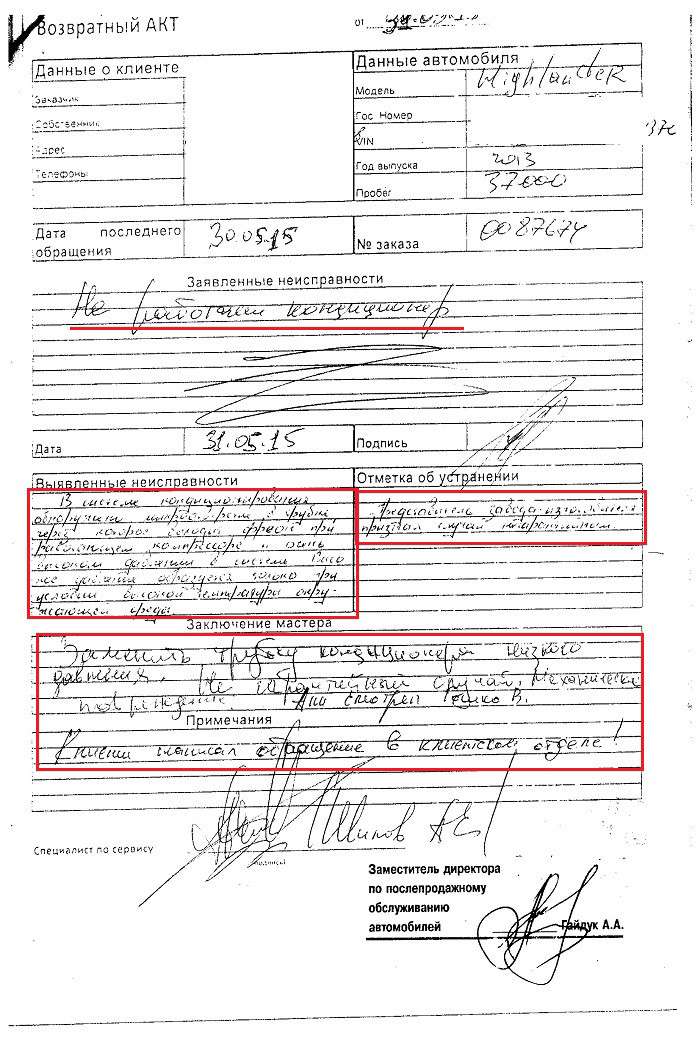 Возвратный АКТ от
Данные о клиенте
Данные автомобиля
Заказчик
Модель Highlander
Собственник
Гос. Номер
VIN 37C
Адрес
Год выпуска 2013
Телефоны
Пробег 37000
Дата последнего обращения 30.05.15
№ заказа 0087674
Заявленные неисправности
Не работает кондиционер
Дата 31.05.15 Подпись
Выявленные неисправности
В системе кондиционирования
обнаружена в трубке
через которую фреон при
работающем компрессоре и
высоком давлении в системе.
давления только при
условии высокой температуры окру-
жающей среды.
Отметка об устранении
Представитель завода-изготовителя
признал случай гарантийным.
Заключение мастера
Заменить трубку кондиционера низкого
давления. Не гарантийный случай. Механическое
повреждение смотрел В.
Примечания
Клиент написал обращение в клиентском отделе!
Специалист по сервису
(подпись)
Заместитель директора
по послепродажному
обслуживанию
автомобилей Гайдук А.А.